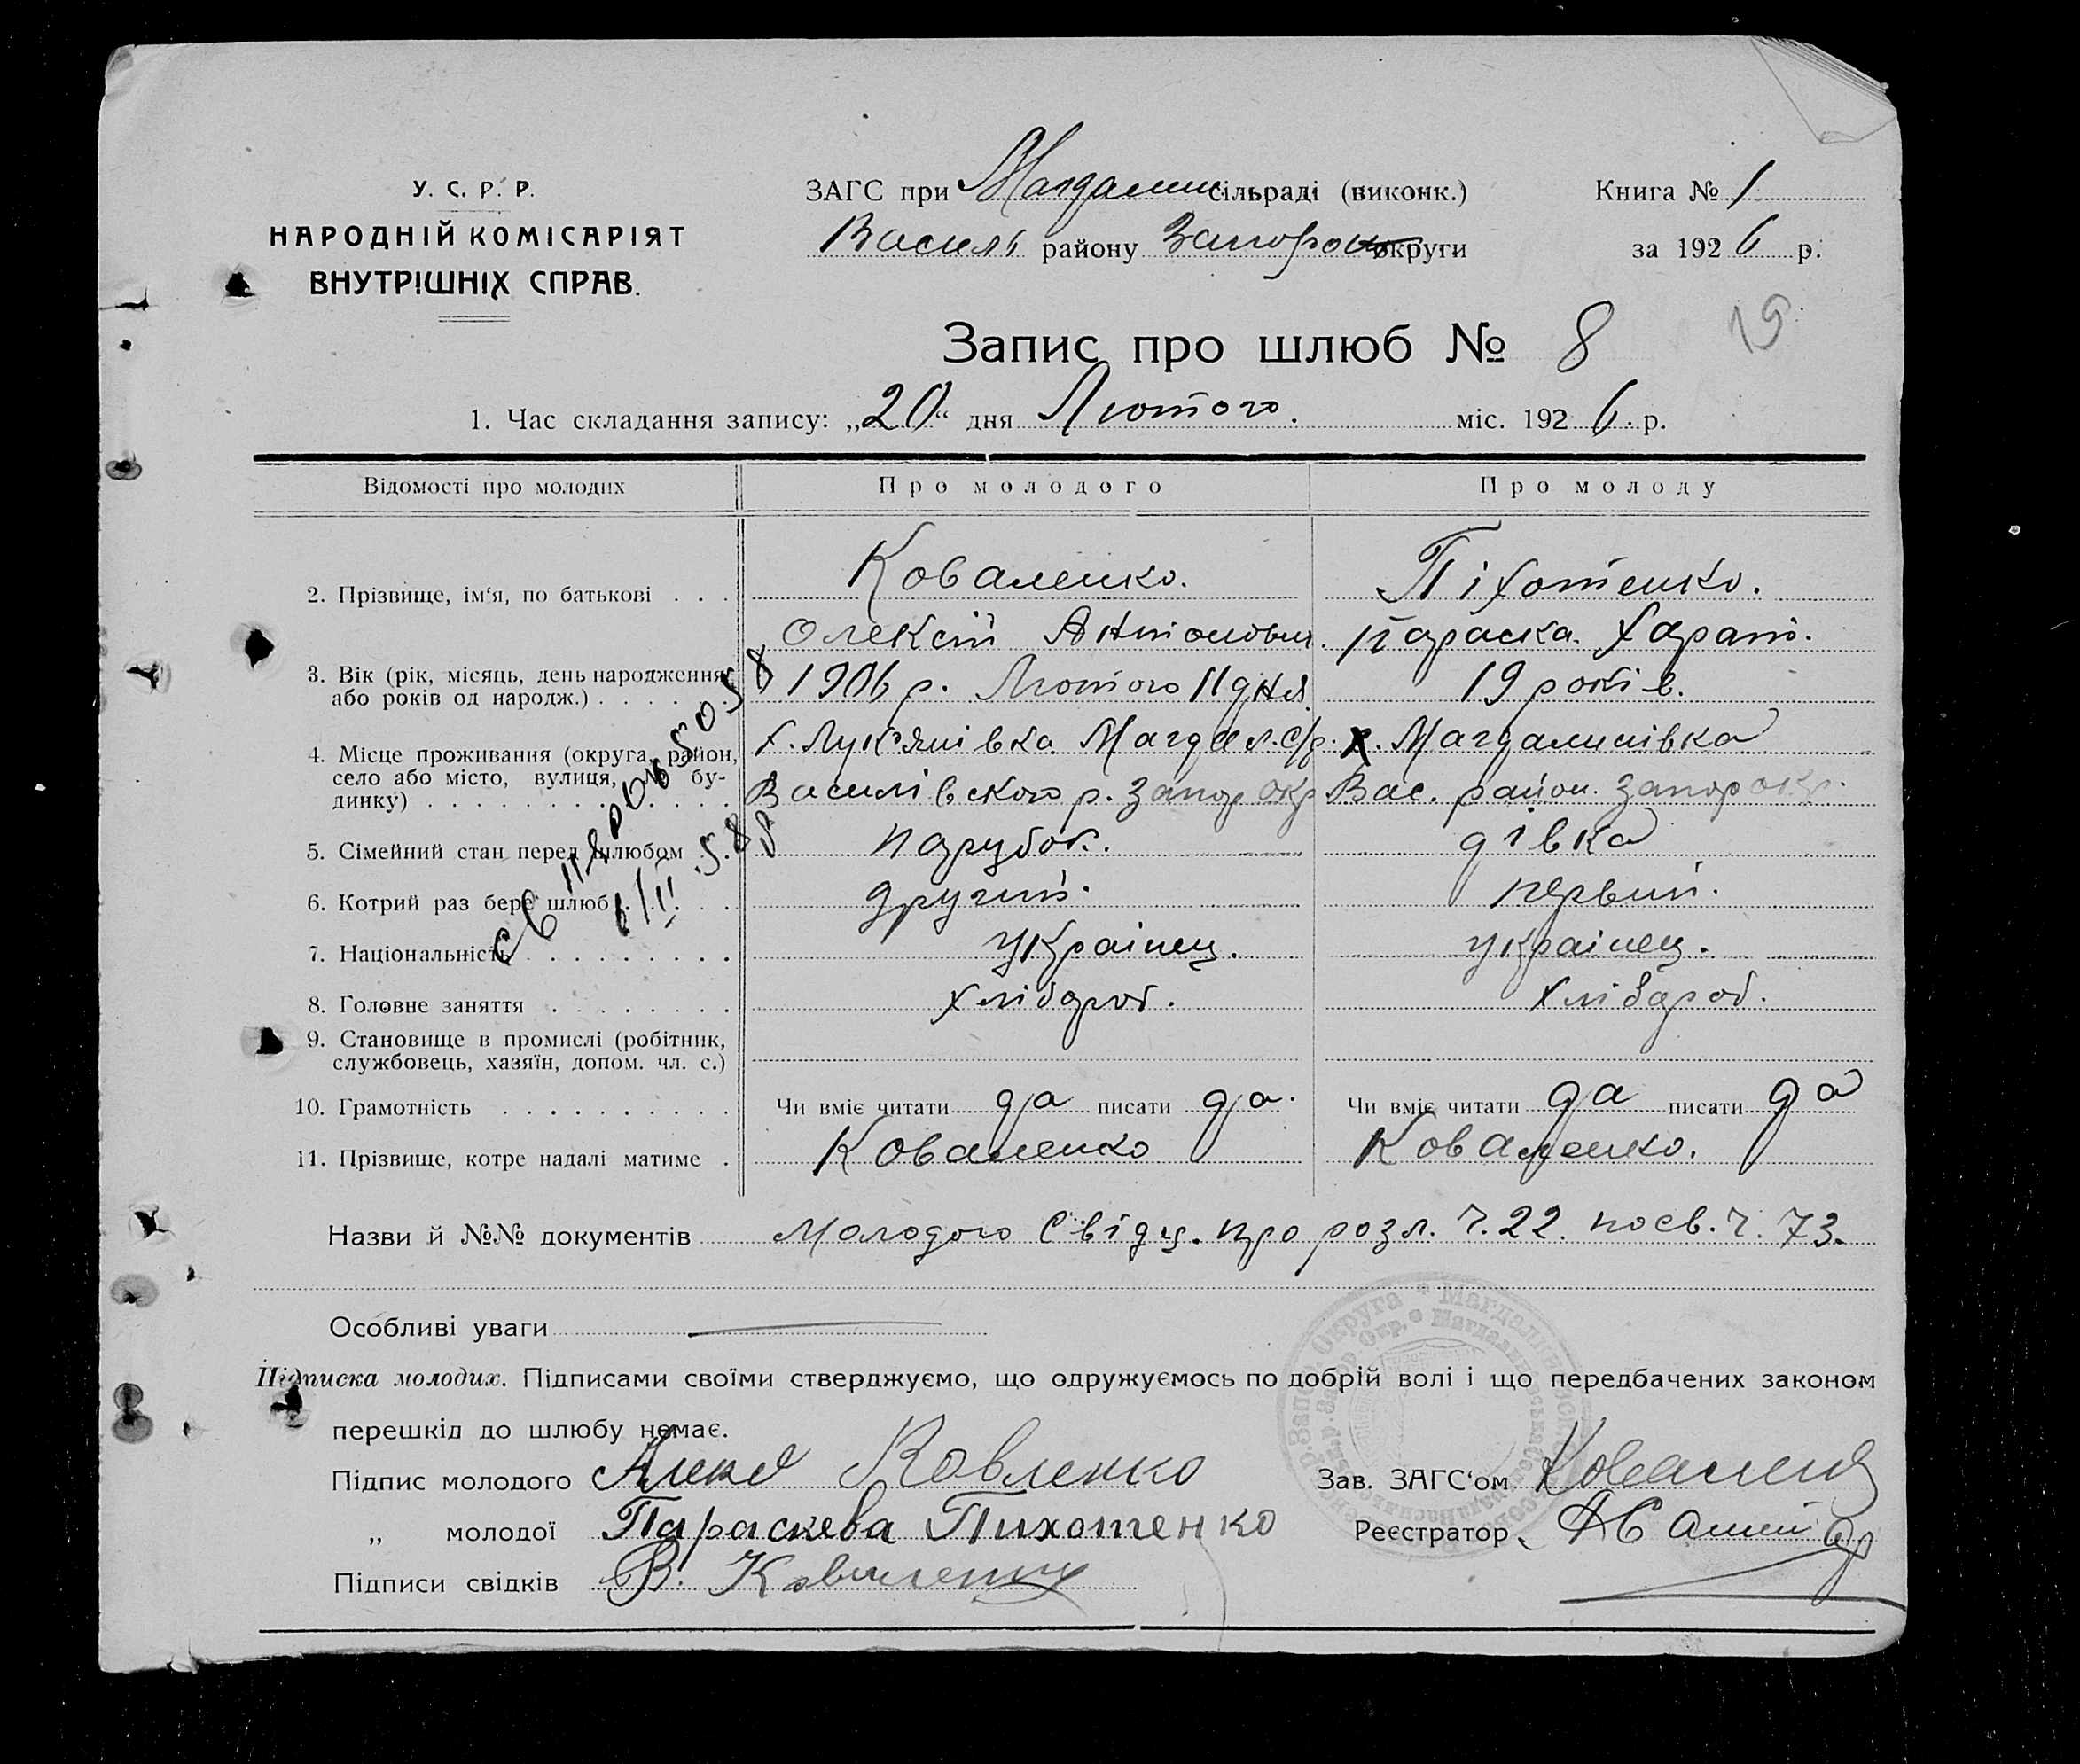 У. С. Р. Р.
НАРОДНІЙ КОМІСАРІЯТ
ВНУТРІШНІХ СПРАВ.
ЗАГС при Магдалин сільраді (виконк.)
Василь району Запорож округи
Книга № 1
за 1926 р.
Запис про шлюб № 8
19
1. Час складання запису: „20“ дня Лютого. міс. 1926. р.
Відомості про молодих Про молодого Про молоду
2. Прізвище, ім‘я, по батькові . . . Коваленко. Піхотенко.
Олексій Антонович. Параска. Харит.
3. Вік (рік, місяць, день народження, або років од народж.) . . . . . . 1906 р. Лютого 11 дня. 19 років.
4. Місце проживання (округа, район, село або місто, вулиця, № будинку) . . . . х. Лук'янівка Магдал. с/р. х. Магдалинівка
Василівского р. Запор окр Вас. район. Запор окр.
5. Сімейний стан перед шлюбом . . парубок. дівка
6. Котрий раз бере шлюб . . . . другий. первий.
7. Національність . . . . . . . . . українец. українец.
8. Головне заняття . . . . . . . . хлібороб. хлібороб.
9. Становище в промислі (робітник, службовець, хазяїн, допом. чл. с.)
10. Грамотність . . . . . . . . . . Чи вміє читати да писати да. Чи вміє читати да писати да
11. Прізвище, котре надалі матиме . Коваленко Коваленко.
Назви й №№ документів Молодого Свідц. про розл. ч. 22. посв. ч. 73.
Особливі уваги
Підписка молодих. Підписами своїми стверджуємо, що одружуємось по добрій волі і що передбачених законом
перешкід до шлюбу немає.
Підпис молодого Ковленко
„ молодої Параскева Пихотенко
Підписи свідків В. Коваленко
Зав. ЗАГС‘ом Коваленко
Реєстратор